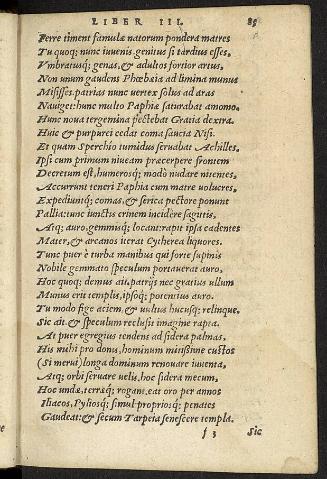 LIBER III. 85
Ferre timent famulæ natorum pondera matres
Tu quoq; nunc iuuenis, genitus si tardius esses,
Vmbratusq; genas, & adultos fortior artus,
Non unum gaudens Phœbæia ad limina munus
Misisses. patrias nunc uertex solus ad aras
Nauiget: hunc multo Paphie saturabat amomo.
Hunc noua tergemina pectebat Gratia dextra.
Huic & purpurei cedat coma saucia Nisi.
Et quam Sperchio tumidus seruabat Achilles.
Ipsi cum primum niueam præcerpere frontem
Decretum est, humerosq; modò nudare nitentes.
Accurrunt teneri Paphia cum matre uolucres.
Expediuntq; comas, & serica pectore ponunt
Pallia: tunc iunctis crinem incidere sagittis,
Atq; auro, gemmisq; locant: rapit ipsa cadentes
Mater, & arcanos iterat Cytherea liquores.
Tunc puer è turba manibus qui forte supinis
Nobile gemmato speculum portauerat auro,
Hoc quoq; demus ait. patrijs nec gratius ullum
Munus erit templis, ipsoq; potentius auro.
Tu modo fige aciem, & uultus hucusq; relinque.
Sic ait & speculum reclusit imagine rapta.
At puer egregius tendens ad sidera palmas.
His mihi pro donis, hominum mitissime custos
(Si merui) longa dominum renouare iuuenta,
Atq; orbi seruare uelis, hoc sidera mecum,
Hoc undæ, terræq; rogant. eat oro per annos
Iliacos, Pyliosq; simul: propriosq; penates
Gaudeat: & secum Tarpeia senescere templa.
f 3 Sic